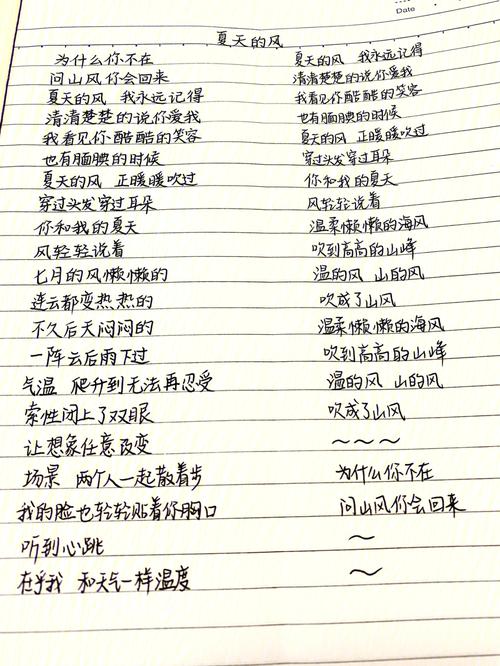 Date
夏天的风
为什么你不在
问山风你会回来
夏天的风 我永远记得
清清楚楚的说你爱我
我看见你酷酷的笑容
也有腼腆的时候
夏天的风 正暖暖吹过
穿过头发穿过耳朵
你和我的夏天
风轻轻说着
七月的风懒懒的
连云都变热热的
不久后天闷闷的
一阵云后雨下过
气温 爬升到无法再忍受
索性闭上了双眼
让想象任意改变
场景 两个人一起散着步
我的脸也轻轻贴着你胸口
听到心跳
在乎我 和天气一样温度
夏天的风 我永远记得
清清楚楚的说你爱我
我看见你酷酷的笑容
也有腼腆的时候
夏天的风 正暖暖吹过
穿过头发穿过耳朵
你和我的夏天
风轻轻说着
温柔懒懒的海风
吹到高高的山峰
温的风 山的风
吹成了山风
温柔懒懒的海风
吹到高高的山峰
温的风 山的风
吹成了山风
~~~
为什么你不在
问山风你会回来
~
~